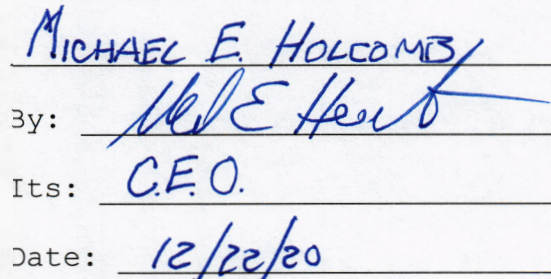 MICHAEL E. HOLCOMB
By:
Its: C.E.O.
Date: 12/22/20